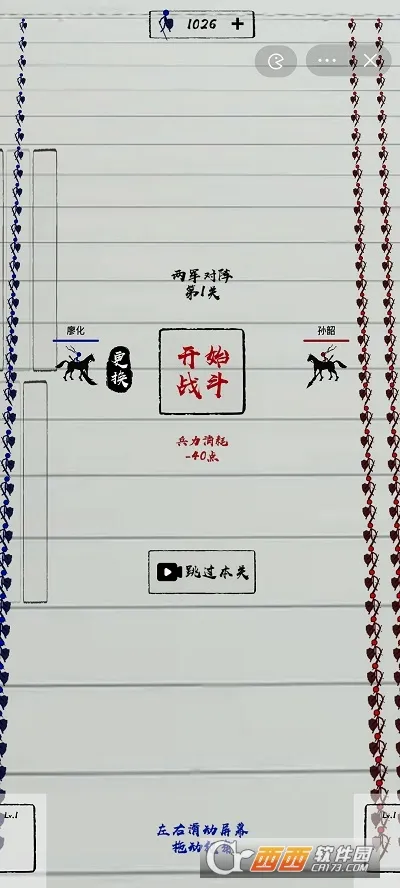 1026 +
两军对阵
第1关
廖化
孙韶
更换
开始
战斗
兵力消耗
-40点
跳过本关
左右滑动屏幕
拖动
Lv.1
Lv.1
西西软件园
CR173.COM